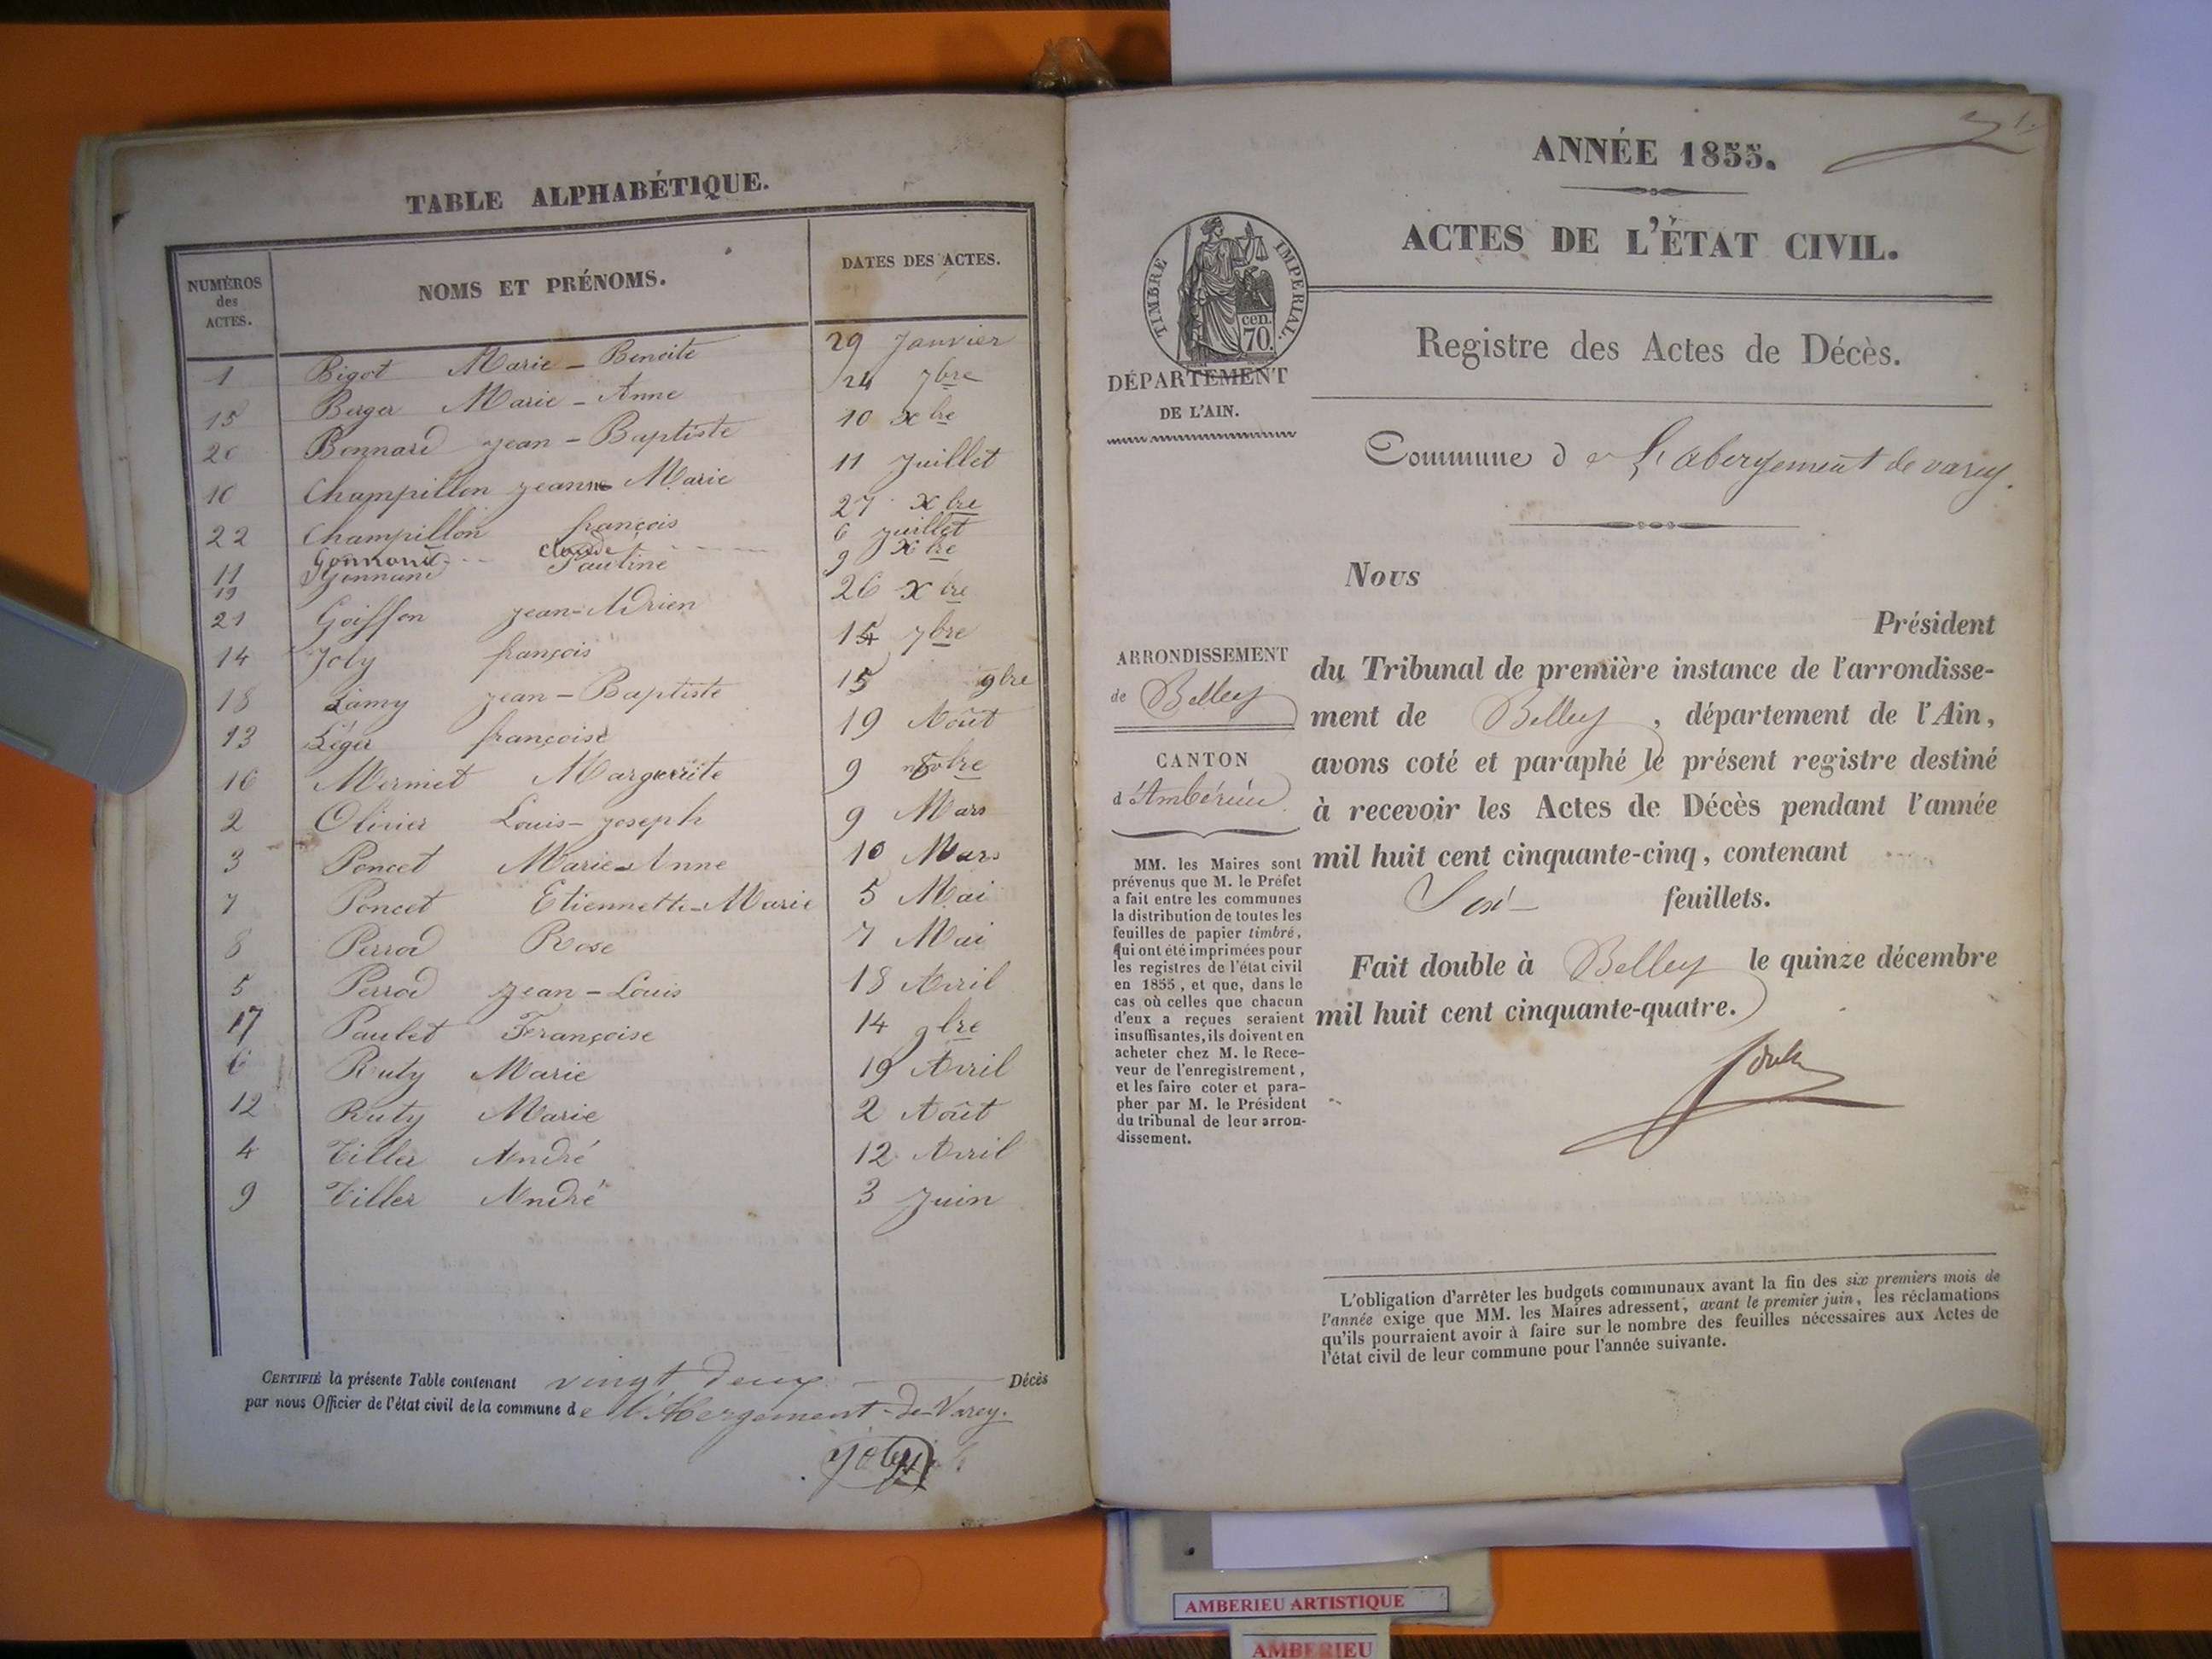 TABLE ALPHABÉTIQUE.
NUMÉROS des ACTES. NOMS ET PRÉNOMS. DATES DES ACTES.
1 Bigot Marie-Benoite 29 Janvier
15 Berger Marie-Anne 24 7bre
20 Bonnard Jean-Baptiste 10 xbre
10 Champillon Jeanne Marie 11 Juillet
22 Champillon françois 27 Xbre
11 Gonnand claude 6 juillet
19 Gonnand Pauline 9 Xbre
21 Goiffon Jean-Adrien 26 Xbre
14 Joly françois 7bre
18 Lamy Jean-Baptiste 15 9bre
13 Léger françoise 19 Août
16 Mermet Marguerite 9
2 Olivier Louis-Joseph 9 Mars
3 Poncet Marie-Anne 10 Mars
7 Poncet Etiennette-Marie 5 Mai
8 Perrod Rose 7 Mai
5 Perrod Jean-Louis 18 Avril
17 Paulet Françoise 14 9bre
6 Ruty Marie 19 Avril
12 Ruty Marie 2 Août
4 Tiller André 12 Avril
9 Tiller André 3 Juin
CERTIFIÉ la présente Table contenant vingt deux Décès
par nous Officier de l'état civil de la commune de l'Abergement-de-Varey.
Joly
ANNÉE 1855.
ACTES DE L'ÉTAT CIVIL.
TIMBRE IMPERIAL.
cen.
70.
DÉPARTEMENT
DE L'AIN.
Registre des Actes de Décès.
Commune de L'abergement de varey.
Nous
Président
du Tribunal de première instance de l'arrondisse-
ment de Belley, département de l'Ain,
avons coté et paraphé le présent registre destiné
à recevoir les Actes de Décès pendant l'année
mil huit cent cinquante-cinq, contenant
Six feuillets.
Fait double à Belley le quinze décembre
mil huit cent cinquante-quatre.
ARRONDISSEMENT
de Belley
CANTON
d'Ambérieu
MM. les Maires sont
prévenus que M. le Préfet
a fait entre les communes
la distribution de toutes les
feuilles de papier timbré,
qui ont été imprimées pour
les registres de l'état civil
en 1855, et que, dans le
cas où celles que chacun
d'eux a reçues seraient
insuffisantes, ils doivent en
acheter chez M. le Rece-
veur de l'enregistrement,
et les faire coter et para-
pher par M. le Président
du tribunal de leur arron-
dissement.
L'obligation d'arrêter les budgets communaux avant la fin des six premiers mois de
l'année exige que MM. les Maires adressent, avant le premier juin, les réclamations
qu'ils pourraient avoir à faire sur le nombre des feuilles nécessaires aux Actes de
l'état civil de leur commune pour l'année suivante.
AMBERIEU ARTISTIQUE
AMBERIEU